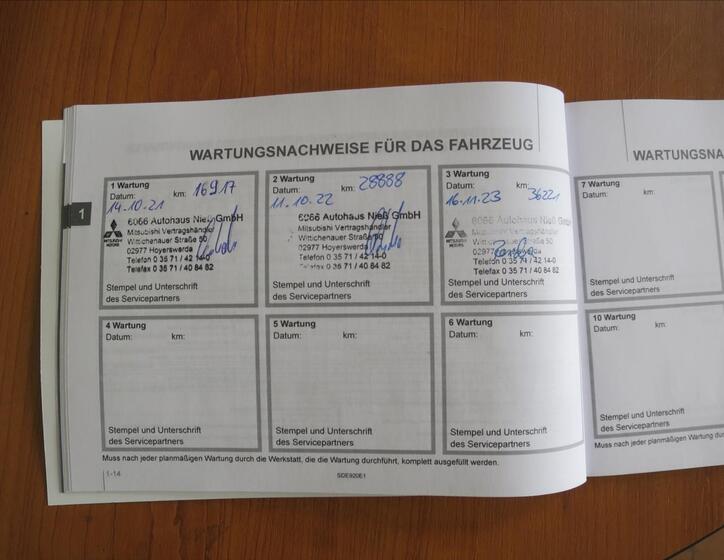 WARTUNGSNACHWEISE FÜR DAS FAHRZEUG
1 Wartung
Datum: km: 16917
14.10.21
6066 Autohaus Nieß GmbH
Mitsubishi Vertragshändler
Wittichenauer Straße 50
02977 Hoyerswerda
Telefon 0 35 71 / 42 14-0
Telefax 0 35 71 / 40 84 82
MITSUBISHI
MOTORS
Stempel und Unterschrift
des Servicepartners
2 Wartung
Datum: km: 28888
11.10.22
6066 Autohaus Nieß GmbH
Mitsubishi Vertragshändler
Wittichenauer Straße 50
02977 Hoyerswerda
Telefon 0 35 71 / 42 14-0
Telefax 0 35 71 / 40 84 82
Stempel und Unterschrift
des Servicepartners
3 Wartung
Datum: km:
16.11.23 36221
6066 Autohaus Nieß GmbH
Mitsubishi Vertragshändler
Wittichenauer Straße 50
02977 Hoyerswerda
Telefon 0 35 71 / 42 14-0
Telefax 0 35 71 / 40 84 82
MITSUBISHI
MOTORS
Stempel und Unterschrift
des Servicepartners
1
4 Wartung
Datum: km:
Stempel und Unterschrift
des Servicepartners
5 Wartung
Datum: km:
Stempel und Unterschrift
des Servicepartners
6 Wartung
Datum: km:
Stempel und Unterschrift
des Servicepartners
Muss nach jeder planmäßigen Wartung durch die Werkstatt, die die Wartung durchführt, komplett ausgefüllt werden.
1-14
SDE920E1
WARTUNGSNA
7 Wartung
Datum: km:
Stempel und Unterschrift
des Servicepartners
10 Wartung
Datum: km:
Stempel und Unterschrift
des Servicepartners
Muss nach jeder planmäßigen Wartung durch